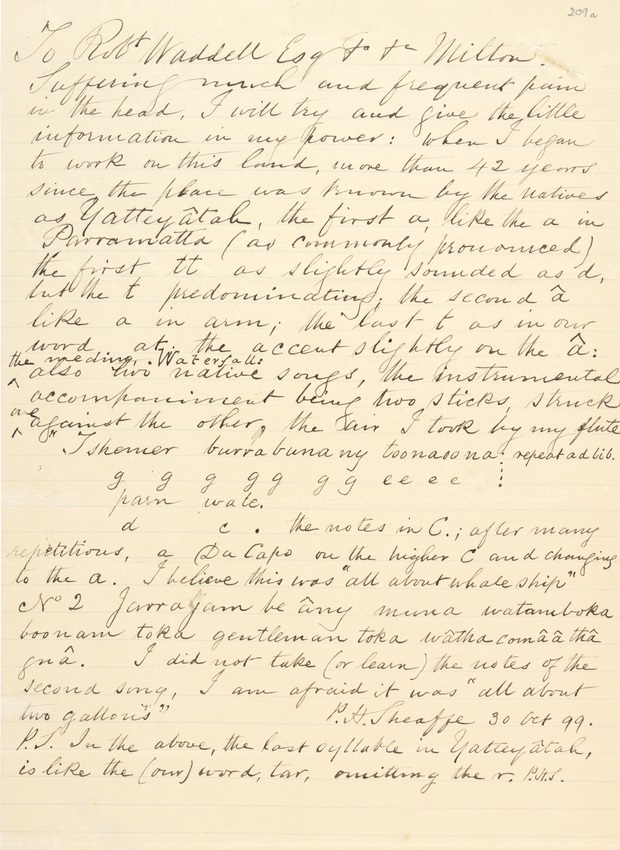 209a
To Robt Waddell Esq &c &c Milton.
Suffering much and frequent pain
in the head, I will try and give the little
information in my power: when I began
to work on this land, more than 42 years
since, the place was known by the natives
as Yatteyâtah, the first a, like the a in
Parramatta (as commonly pronounced)
the first tt as slightly sounded as d,
but the t predominating; the second â
like a in arm; the last t as in our
word at; the accent slightly on the â:
the meaning, Waterfall:
also two native songs, the instrumental
accompaniment being two sticks, struck
one against the other, the air I took by my flute
"Ishemer burrabunany toonaoona: repeat ad lib.
g g g gg g g e e e e
parn wate.
d c. the notes in C.; after many
repetitions, a Da Capo on the higher C and changing
to the a. I believe this was "all about whale ship"
No 2 Jarrajam be âny muna watamboka
boonam toka gentleman toka wâtha comââ thâ
gnâ. I did not take (or learn) the notes of the
second song, I am afraid it was "all about
two gallons"
P.H. Sheaffe 30 Oct 99.
P.S. In the above, the last syllable in Yatteyâtah,
is like the (our) word, tar, omitting the r. P.H.S.